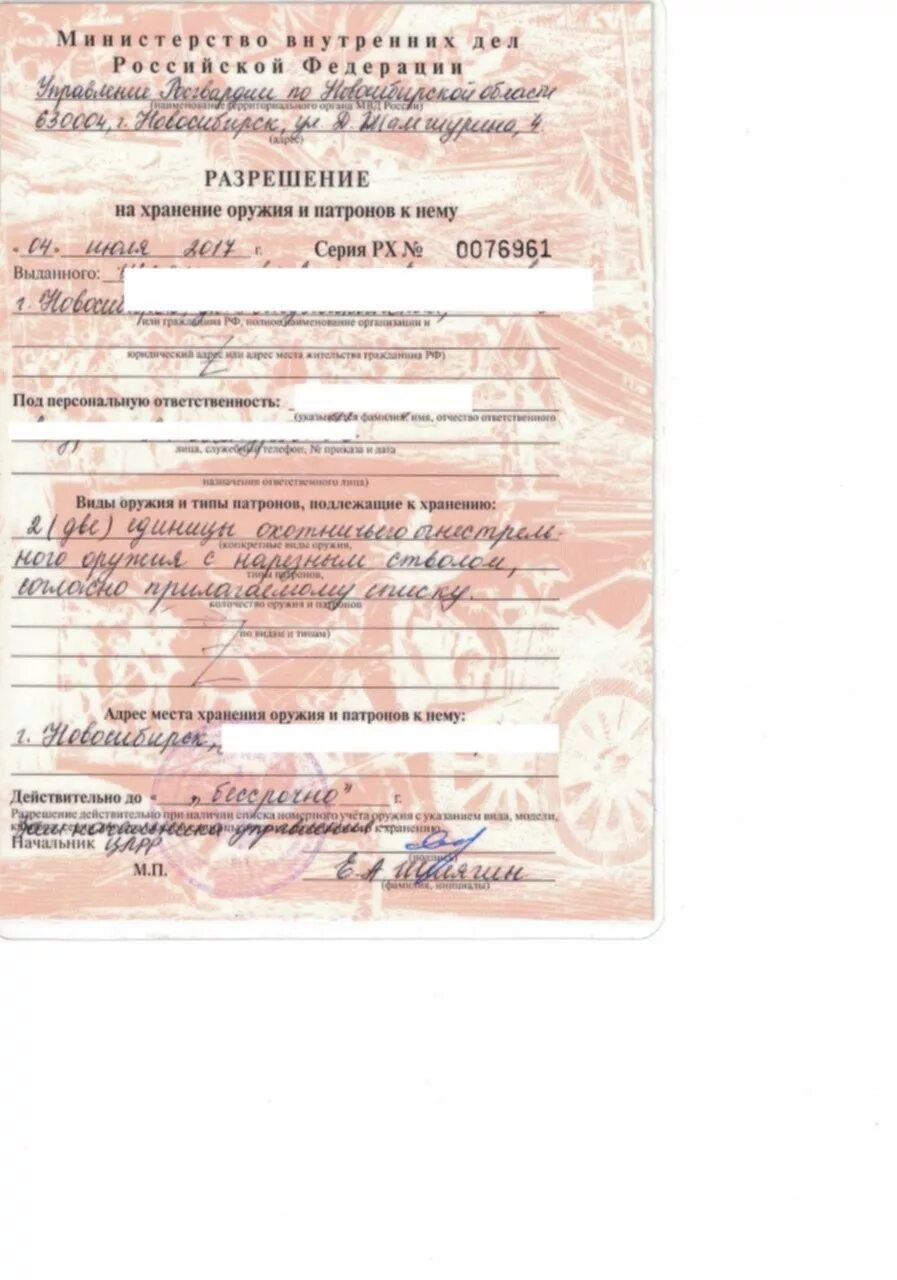 Министерство внутренних дел
Российской Федерации
Управление Росгвардии по Новосибирской области
(наименование территориального органа МВД России)
630004, г. Новосибирск, ул. Д. Шамшурина, 4.
(адрес)
РАЗРЕШЕНИЕ
на хранение оружия и патронов к нему
"04" июля 2017 г. Серия РХ № 0076961
Выданного:
г.
или гражданина РФ, полное наименование организации и
юридический адрес или адрес места жительства гражданина РФ)
Под персональную ответственность:
фамилия, имя, отчество ответственного
лица, служебный телефон, № приказа и дата
назначения ответственного лица)
Виды оружия и типы патронов, подлежащие к хранению:
2 (две) единицы охотничьего огнестрель-
(конкретные виды оружия,
ного оружия с нарезным стволом,
типы патронов,
согласно прилагаемому списку.
количество оружия и патронов
по видам и типам)
Адрес места хранения оружия и патронов к нему:
г. Новосибирск,
Действительно до " „бессрочно" г.
Разрешение действительно при наличии списка номерного учета оружия с указанием вида, модели,
к хранению
Зам начальника управления
Начальник ЦЛРР
(подпись)
М.П. Е.А.
(фамилия, инициалы)